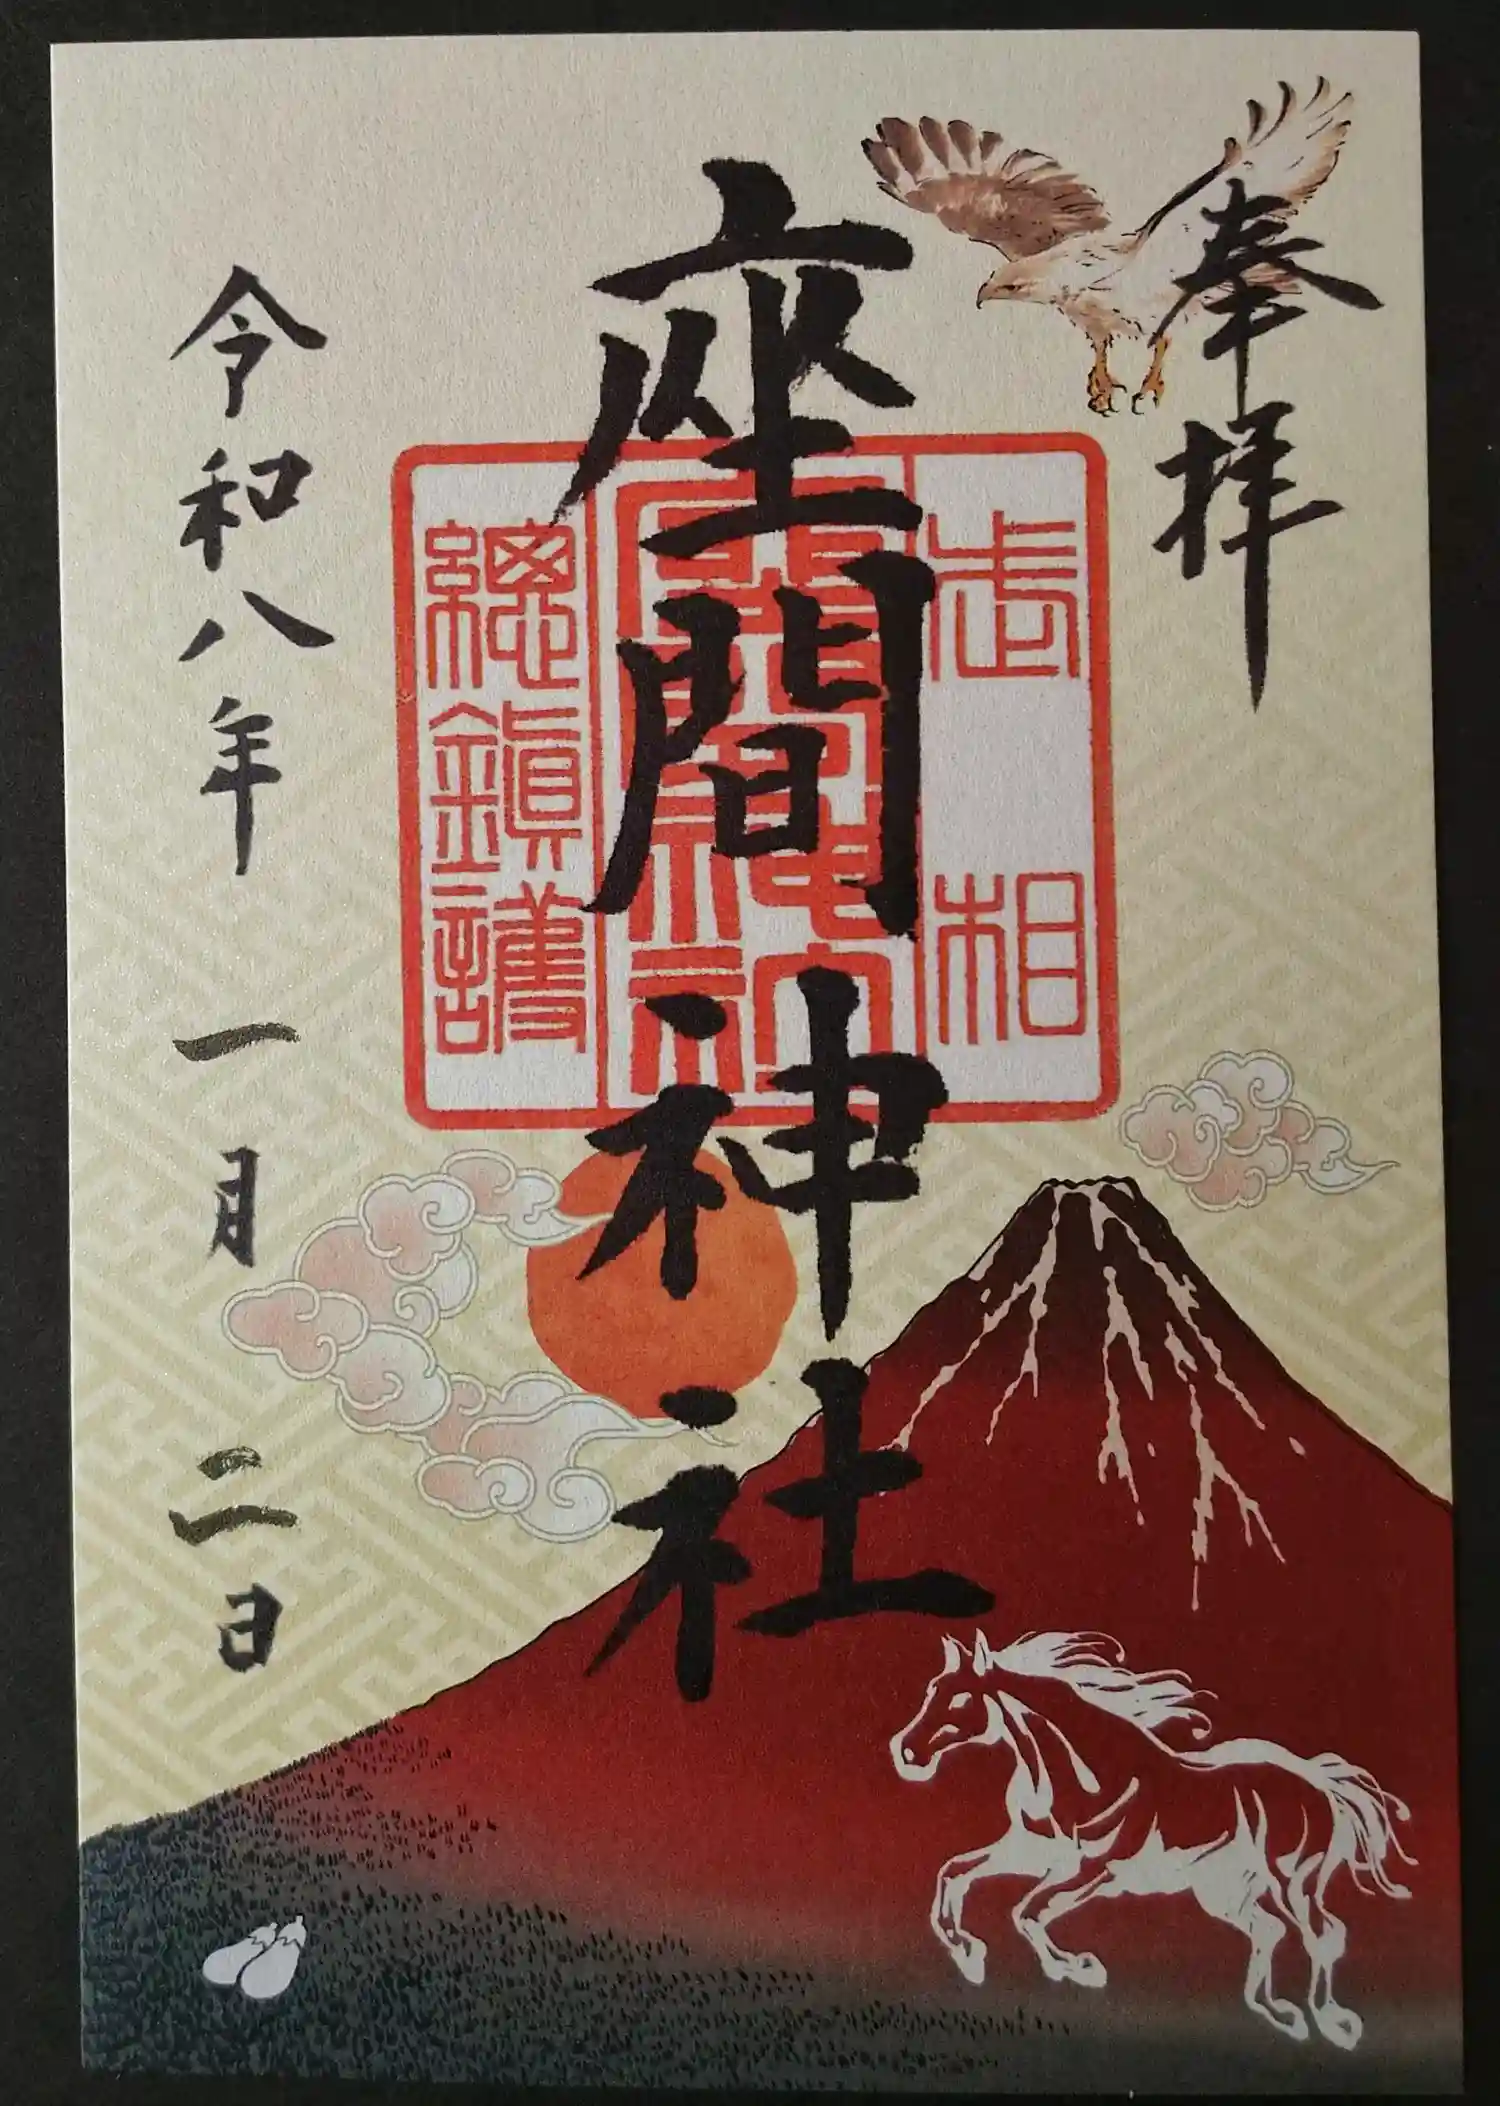 奉拝
相武
座間神社
總鎮護
座間神社
令和八年 一月 二日